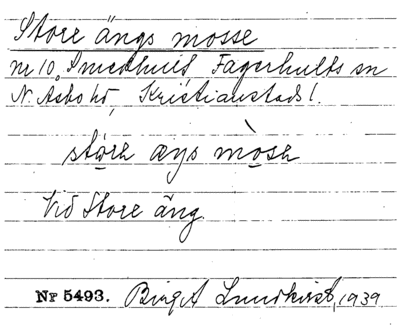 Store ängs mosse
nr 10 Smedhult Fagerhults sn
N. Åsbo hd, Kristianstads l.
störe æŋs mòse
Vid Store äng.
Nr 5493. Birgit Lundkvist, 1939